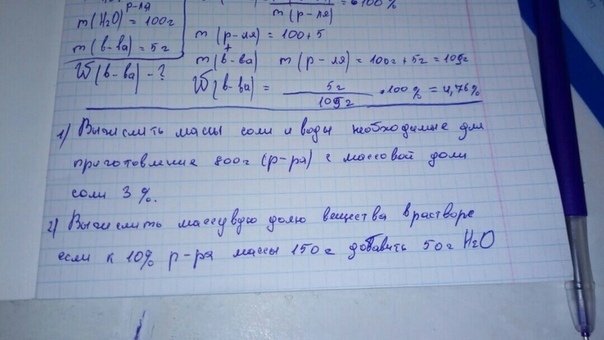 m(H₂O) р-ля = 100г
m(р-ля)
• 100%
m(в-ва) = 5г
m(р-ля) = 100+5
W(в-ва) - ?
m(в-ва) + m(р-ля) = 100г + 5г = 105г
W(в-ва) = 5г / 105г • 100% = 4,76%
1) Вычислить массы соли и воды необходимые для
приготовление 800г (р-ра) с массовой доли
соли 3%.
2) Вычислить массувую долю вещества в растворе
если к 10% р-ра массы 150г добавить 50г H₂O